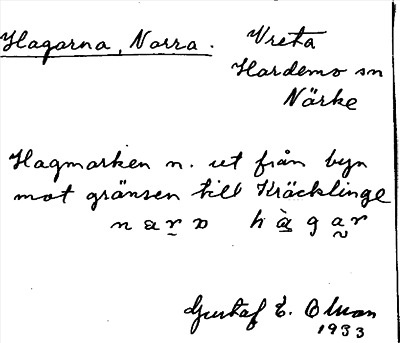 Hagarna, Norra. Vreta
Hardemo sn
Närke
Hagmarken n. ut från byn
mot gränsen till Kräcklinge
Gustaf E. Olson
1933